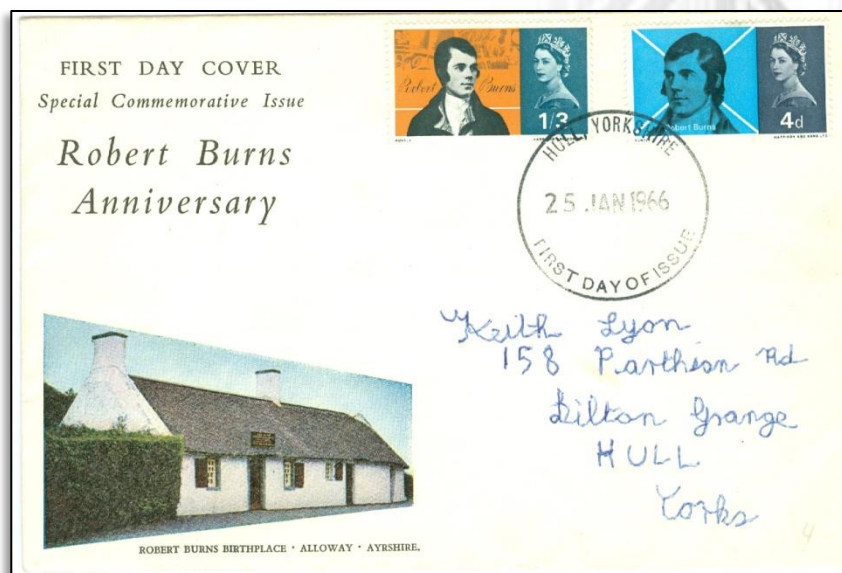 FIRST DAY COVER
Special Commemorative Issue
Robert Burns
Anniversary
Robert Burns
1/3
HARRISON AND SONS LTD
Robert Burns
4d
HARRISON AND SONS LTD
HULL, YORKSHIRE
25 JAN 1966
FIRST DAY OF ISSUE
Keith Lyon
158 Parthian Rd
Bilton Grange
HULL
Yorks
4
ROBERT BURNS BIRTHPLACE · ALLOWAY · AYRSHIRE.